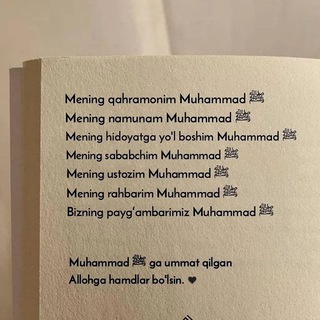 Mening qahramonim Muhammad ﷺ
Mening namunam Muhammad ﷺ
Mening hidoyatga yo'l boshim Muhammad ﷺ
Mening sababchim Muhammad ﷺ
Mening ustozim Muhammad ﷺ
Mening rahbarim Muhammad ﷺ
Bizning payg‘ambarimiz Muhammad ﷺ
Muhammad ﷺ ga ummat qilgan
Allohga hamdlar bo'lsin. ♥